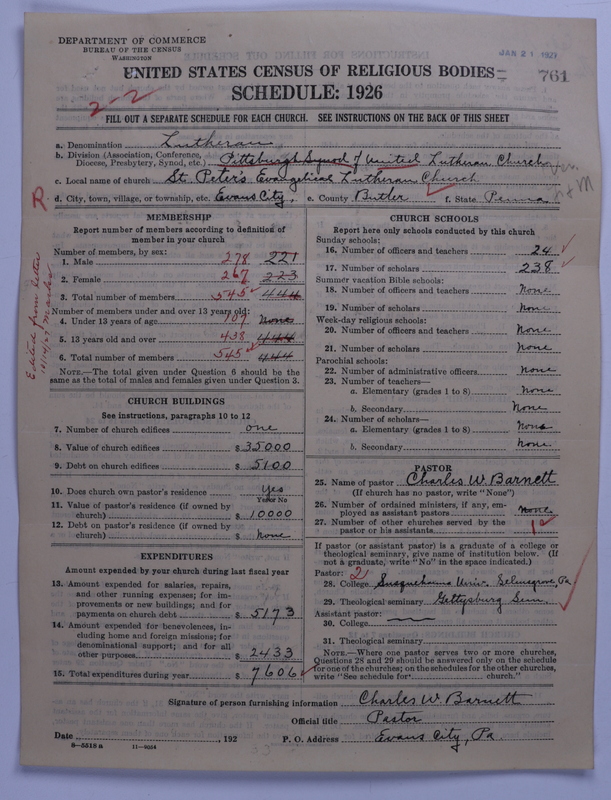 DEPARTMENT OF COMMERCE
BUREAU OF THE CENSUS
WASHINGTON
JAN 21 1927
UNITED STATES CENSUS OF RELIGIOUS BODIES
761
SCHEDULE: 1926
2-2
FILL OUT A SEPARATE SCHEDULE FOR EACH CHURCH. SEE INSTRUCTIONS ON THE BACK OF THIS SHEET
a. Denomination Lutheran
b. Division (Association, Conference, Diocese, Presbytery, Synod, etc.) Pittsburgh Synod of United Lutheran Church
c. Local name of church St. Peter's Evangelical Lutheran Church
R
d. City, town, village, or township, etc. Evans City, e. County Butler f. State Penna
MEMBERSHIP
Report number of members according to definition of
member in your church
Number of members, by sex:
1. Male 278 221
2. Female 267 223
3. Total number of members 545 444
Number of members under and over 13 years old:
4. Under 13 years of age 107 None
5. 13 years old and over 438 444
6. Total number of members 545 444
NOTE.—The total given under Question 6 should be the
same as the total of males and females given under Question 3.
Edited from letter
CHURCH BUILDINGS
See instructions, paragraphs 10 to 12
7. Number of church edifices one
8. Value of church edifices $ 35000
9. Debt on church edifices $ 5100
10. Does church own pastor's residence Yes
Yes or No
11. Value of pastor's residence (if owned by
church) $ 10000
12. Debt on pastor's residence (if owned by
church) $ None
EXPENDITURES
Amount expended by your church during last fiscal year
13. Amount expended for salaries, repairs,
and other running expenses; for im-
provements or new buildings; and for
payments on church debt $ 5173
14. Amount expended for benevolences, in-
cluding home and foreign missions; for
denominational support; and for all
other purposes $ 2433
15. Total expenditures during year $ 7606
CHURCH SCHOOLS
Report here only schools conducted by this church
Sunday schools:
16. Number of officers and teachers 24
17. Number of scholars 238
Summer vacation Bible schools:
18. Number of officers and teachers None
19. Number of scholars None
Week-day religious schools:
20. Number of officers and teachers None
21. Number of scholars None
Parochial schools:
22. Number of administrative officers None
23. Number of teachers—
a. Elementary (grades 1 to 8) None
b. Secondary None
24. Number of scholars—
a. Elementary (grades 1 to 8) None
b. Secondary None
PASTOR
25. Name of pastor Charles W. Barnett
(If church has no pastor, write "None")
26. Number of ordained ministers, if any, em-
ployed as assistant pastors None
27. Number of other churches served by the
pastor or his assistants 1
If pastor (or assistant pastor) is a graduate of a college or
theological seminary, give name of institution below. (If
not a graduate, write "No" in the space indicated.)
Pastor: 2
28. College Susquehanna Univ. Selinsgrove, Pa
29. Theological seminary Gettysburg Sem.
Assistant pastor:
30. College
31. Theological seminary
NOTE.—Where one pastor serves two or more churches,
Questions 28 and 29 should be answered only on the schedule
for one of the churches; on the schedules for the other churches,
write "See schedule for church."
Signature of person furnishing information Charles W Barnett
Official title Pastor
Date , 192 P. O. Address Evans City, Pa.
8—5518 a 11—9054